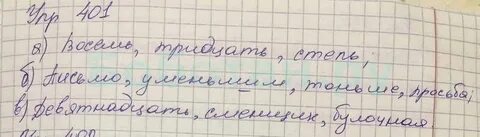 Упр 401
а) Восемь, тридцать, степь,
б) Письмо, уменьшим, тоньше, просьба;
в) Девятнадцать, сменщик, булочная